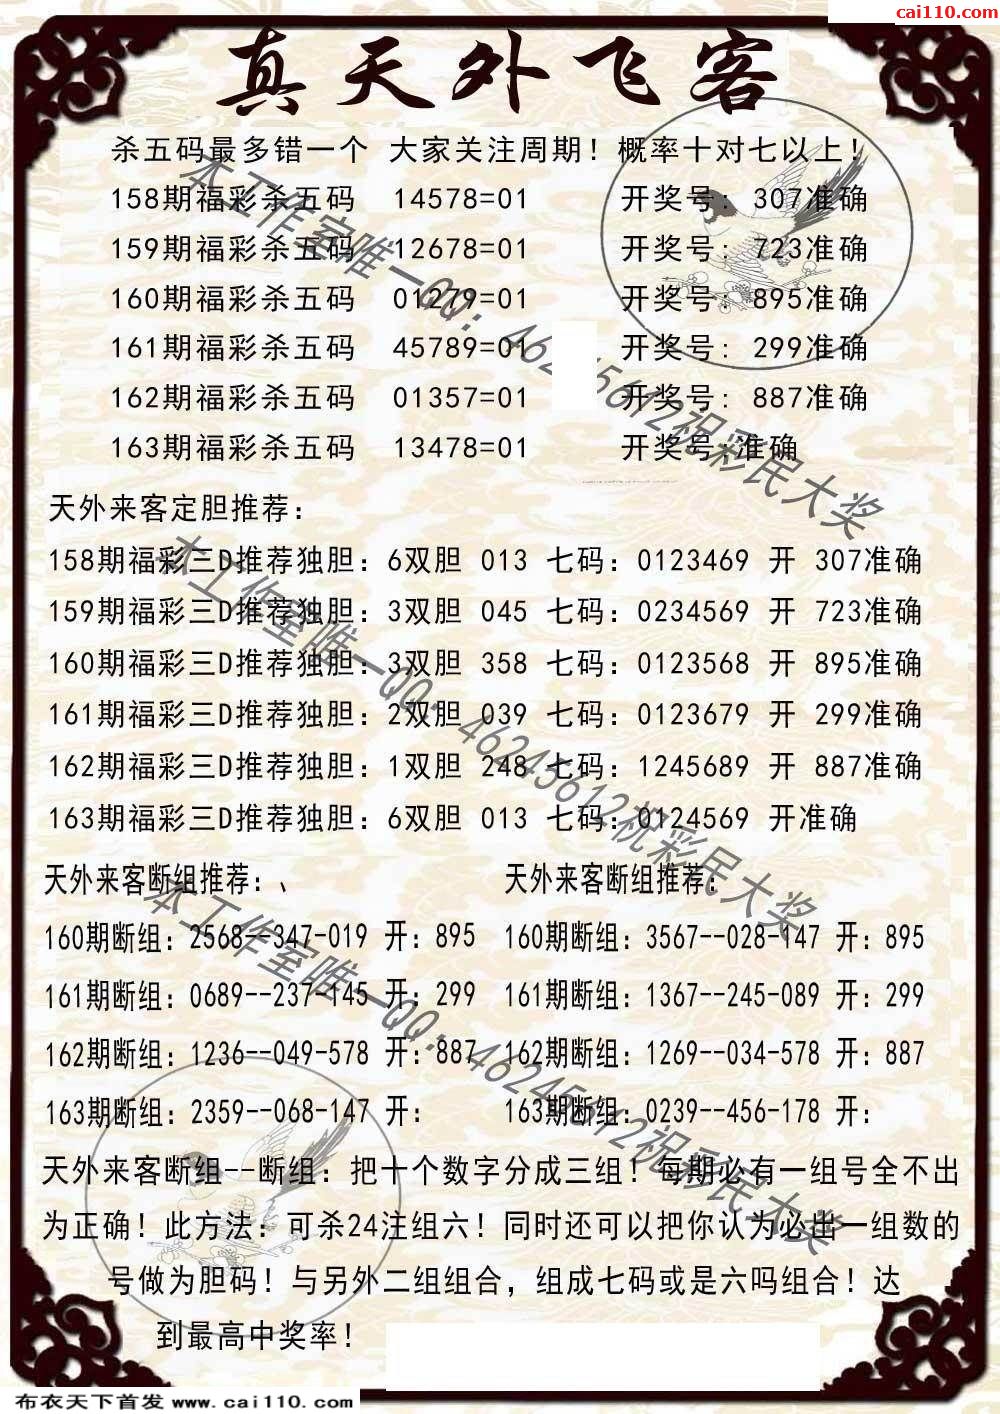 cai110.com
真天外飞客
杀五码最多错一个 大家关注周期！概率十对七以上！
158期福彩杀五码 14578=01 开奖号：307准确
159期福彩杀五码 12678=01 开奖号：723准确
160期福彩杀五码 01279=01 开奖号：895准确
161期福彩杀五码 45789=01 开奖号：299准确
162期福彩杀五码 01357=01 开奖号：887准确
163期福彩杀五码 13478=01 开奖号:准确
天外来客定胆推荐：
158期福彩三D推荐独胆：6双胆 013 七码：0123469 开 307准确
159期福彩三D推荐独胆：3双胆 045 七码：0234569 开 723准确
160期福彩三D推荐独胆：3双胆 358 七码：0123568 开 895准确
161期福彩三D推荐独胆：2双胆 039 七码：0123679 开 299准确
162期福彩三D推荐独胆：1双胆 248 七码：1245689 开 887准确
163期福彩三D推荐独胆：6双胆 013 七码：0124569 开准确
天外来客断组推荐：、 天外来客断组推荐：
160期断组：2568--347-019 开：895 160期断组：3567--028-147 开：895
161期断组：0689--237-145 开：299 161期断组：1367--245-089 开：299
162期断组：1236--049-578 开：887 162期断组：1269--034-578 开：887
163期断组：2359--068-147 开： 163期断组：0239--456-178 开：
天外来客断组--断组：把十个数字分成三组！每期必有一组号全不出
为正确！此方法：可杀24注组六！同时还可以把你认为必出一组数的
号做为胆码！与另外二组组合，组成七码或是六吗组合！达
到最高中奖率！
本工作室唯一QQ：46245612祝彩民大奖
本工作室唯一QQ：46245612祝彩民大奖
本工作室唯一QQ：46245612祝彩民大奖
布衣天下首发 www.cai110.com